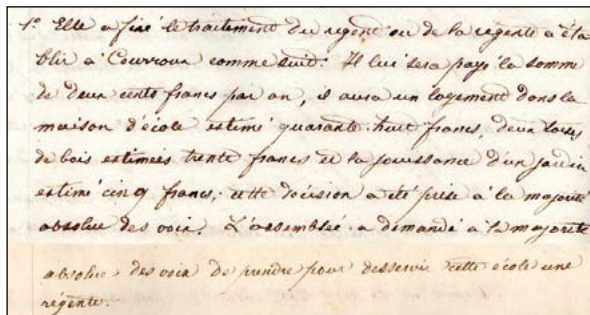 1.° Elle a fixé le traitement du régent ou de la régente à éta
blir à Courroux comme suit: Il lui sera payé la somme
de deux cents francs par an, il aura un logement dans la
maison d'école estimé quarante huit francs, deux toises
de bois estimées trente francs et la jouissance d'un jardin
estimé cinq francs; cette décision a été prise à la majorité
absolue des voix. L'assemblée a demandé à la majorité
absolue des voix de prendre pour desservir cette école une
régente.